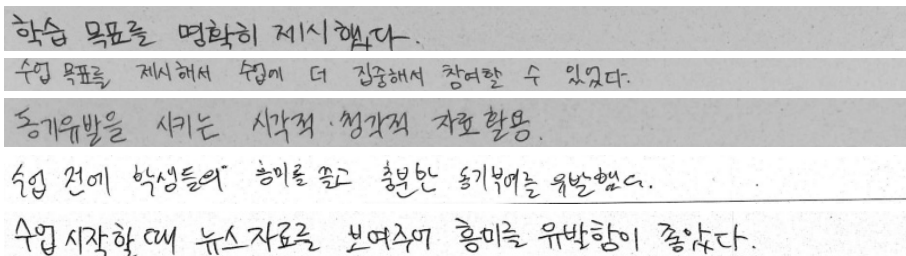 학습 목표를 명확히 제시했다.
수업 목표를 제시해서 수업에 더 집중해서 참여할 수 있었다.
동기유발을 시키는 시각적·청각적 자료 활용.
수업 전에 학생들의 흥미를 끌고 충분한 동기부여를 유발했다.
수업 시작할 때 뉴스자료를 보여주어 흥미를 유발함이 좋았다.